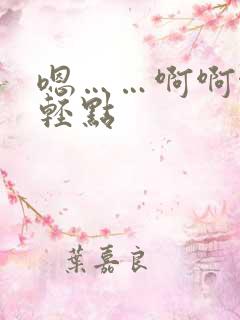 嗯……啊啊
輕點
葉嘉良